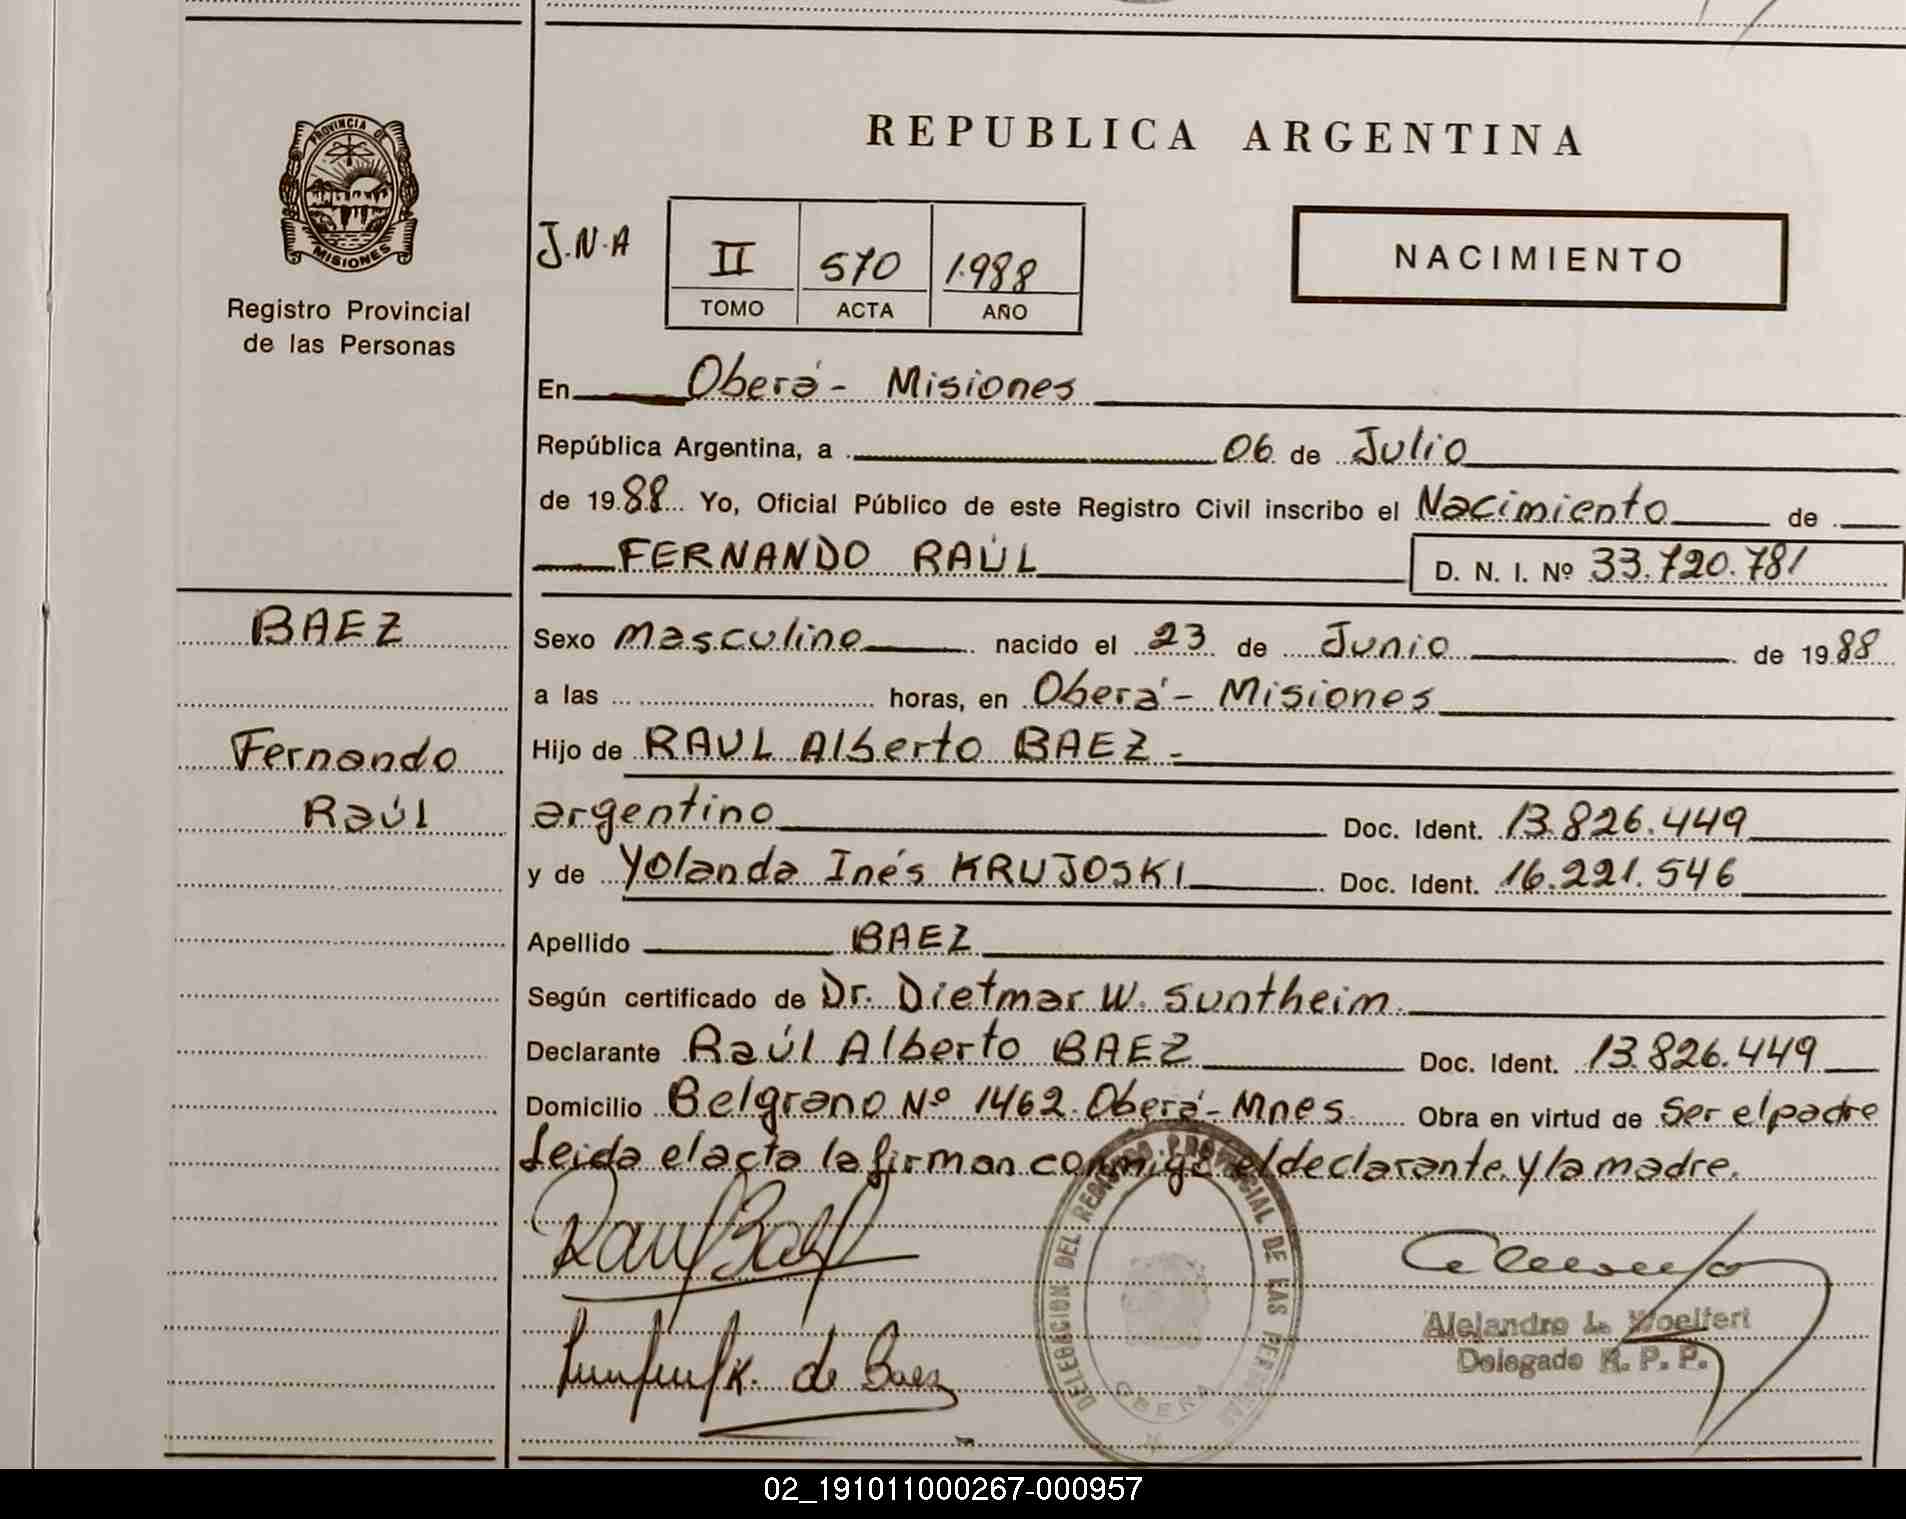 PROVINCIA DE
MISIONES
Registro Provincial
de las Personas
BAEZ
Fernando
Raúl
REPUBLICA ARGENTINA
J.N.A
II 570 1.988
TOMO ACTA AÑO
NACIMIENTO
En Oberá - Misiones
República Argentina, a 06 de Julio
de 1988 Yo, Oficial Público de este Registro Civil inscribo el Nacimiento de
FERNANDO RAÚL D. N. I. Nº 33.720.781
Sexo masculino nacido el 23 de Junio de 1988
a las horas, en Oberá - Misiones
Hijo de RAUL Alberto BAEZ -
argentino Doc. Ident. 13.826.449
y de Yolanda Inés KRUJOSKI Doc. Ident. 16.221.546
Apellido BAEZ
Según certificado de Dr. Dietmar W. Suntheim.
Declarante Raúl Alberto BAEZ Doc. Ident. 13.826.449
Domicilio Belgrano Nº 1462. Oberá - Mnes Obra en virtud de ser el padre
Leida el acta la firman conmigo el declarante y la madre.
DELEGACION DEL REGISTRO PROVINCIAL DE LAS PERSONAS
OBERA
K. de Baez
Alejandro L. Woelfert
Delegado R. P. P.
02_191011000267-000957